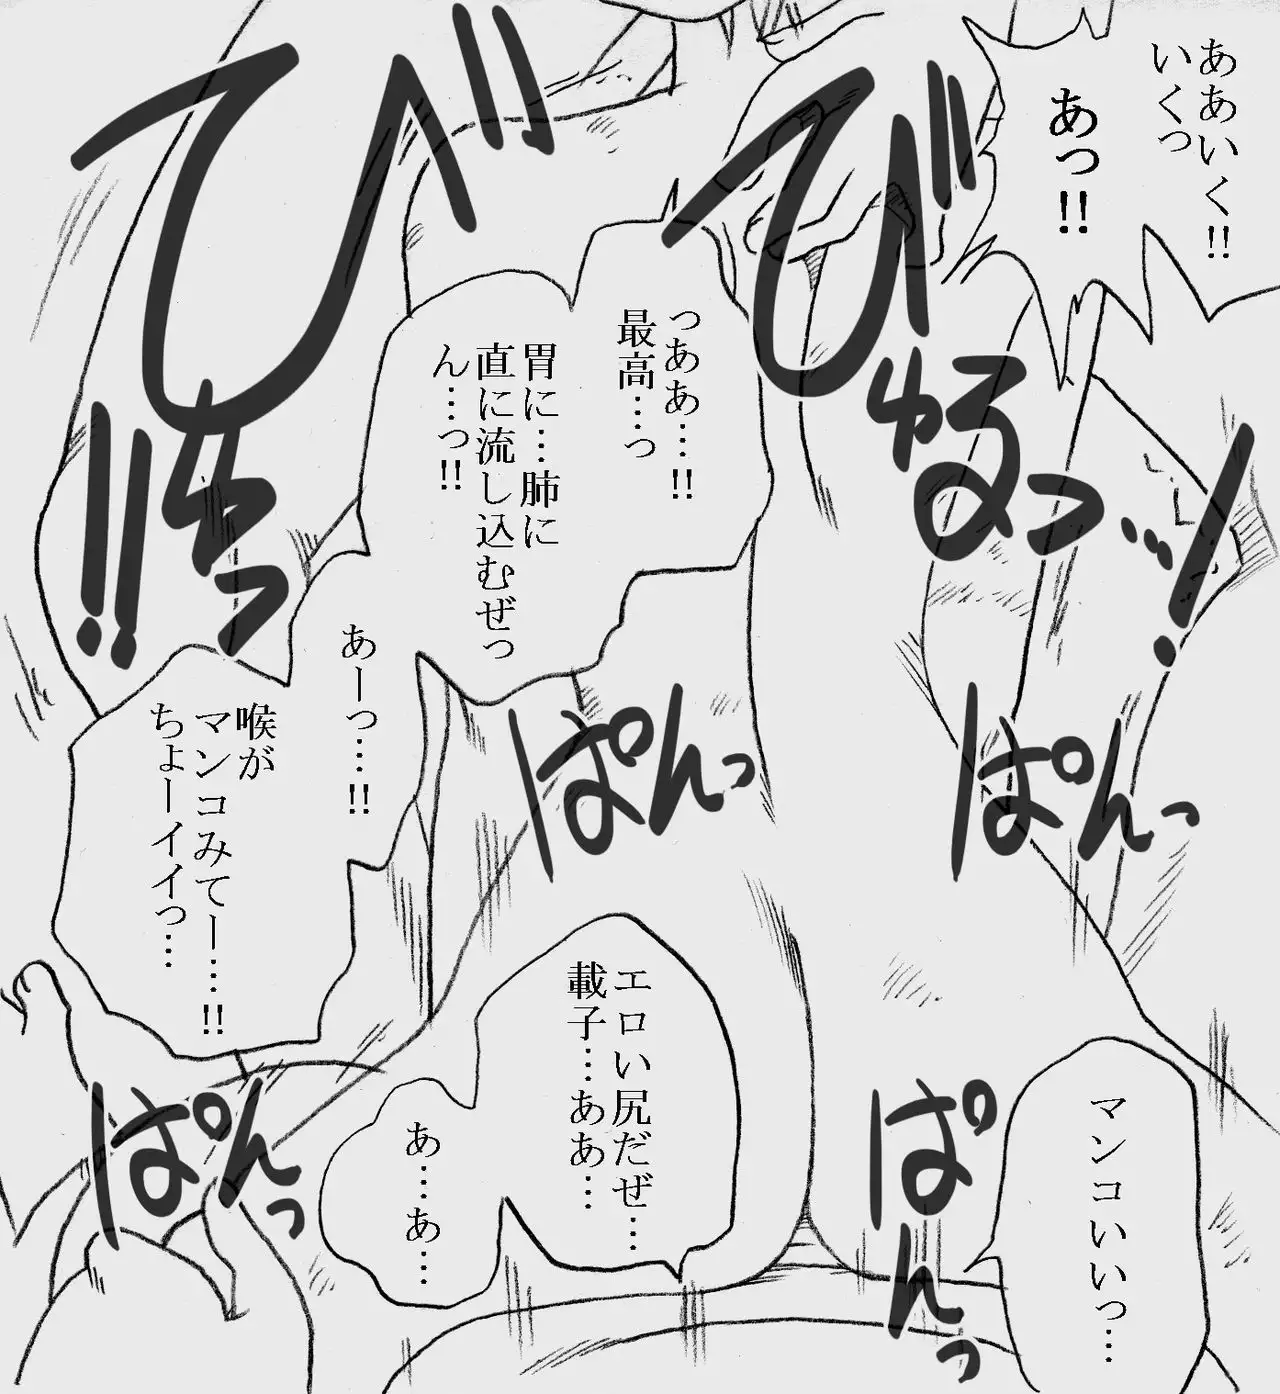 ああいく!!
いくっ
あっ!!
びゅるっ…!
びゅっ!!
っああ…!!
最高…っ
胃に…肺に
直に流し込むぜっ
ん…っ!!
あーっ…!!
喉が
マンコみてー…!!
ちょーイイっ…
ぱんっ
ぱんっ
エロい尻だぜ…
載子…ああ…
あ…あ…
マンコいいっ…
ぱんっ
ぱんっ